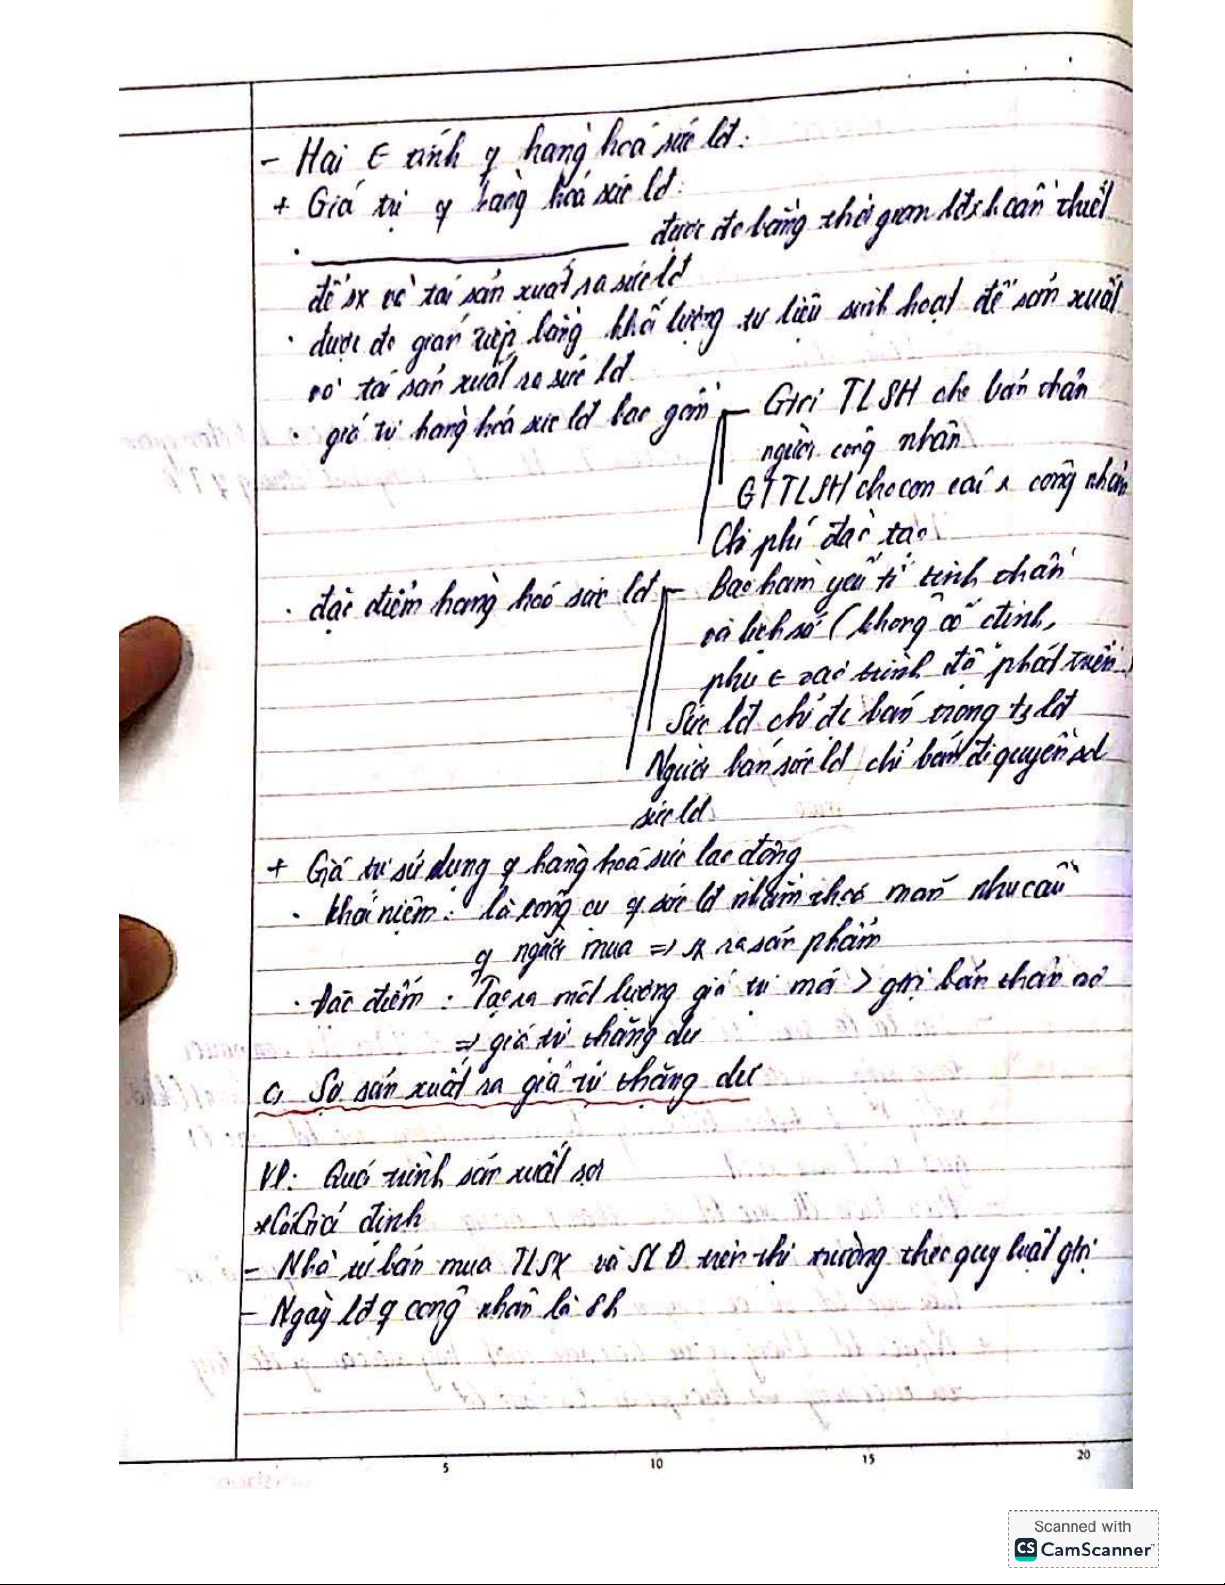 - Hai € tính q hàng hoá sức lđ:
+ Giá trị q hàng hoá sức lđ:
. ________ được đo bằng thời gian lđxh cần thiết
để sx và tái sản xuất ra sức lđ
. được đo gián tiếp bằng khối lượng tư liệu sinh hoạt để sản xuất
và tái sản xuất ra sức lđ
. giá trị hàng hoá sức lđ bao gồm - Gtri TLSH cho bản thân
người công nhân
GTTLSH cho con cái công nhân
Chi phí đào tạo
. đặc điểm hàng hoá sức lđ - Bao hàm yếu tố tinh thần
và lịch sử (không cố định,
phụ € vào trình độ phát triển
Sức lđ chỉ để bán trong lđ
Người bán sức lđ chỉ bán đi quyền sd
sức lđ
+ Giá trị sử dụng q hàng hoá sức lao động
. khái niệm: là công cụ q sức lđ nhằm thoả mãn nhu cầu
q người mua => sx ra sản phẩm
. Đặc điểm : Tạo ra một lượng giá trị mới > gtrị bản thân nó
=> giá trị thặng dư
c, Sự sản xuất ra giá trị thặng dư
VD: Quá trình sản xuất sợi
* Giả định
- Nhà tư bản mua TLSX và SLĐ trên thị trường theo quy luật gtrị
- Ngày lđ q công nhân là 8h
5 10 15 20
Scanned with
CS CamScanner